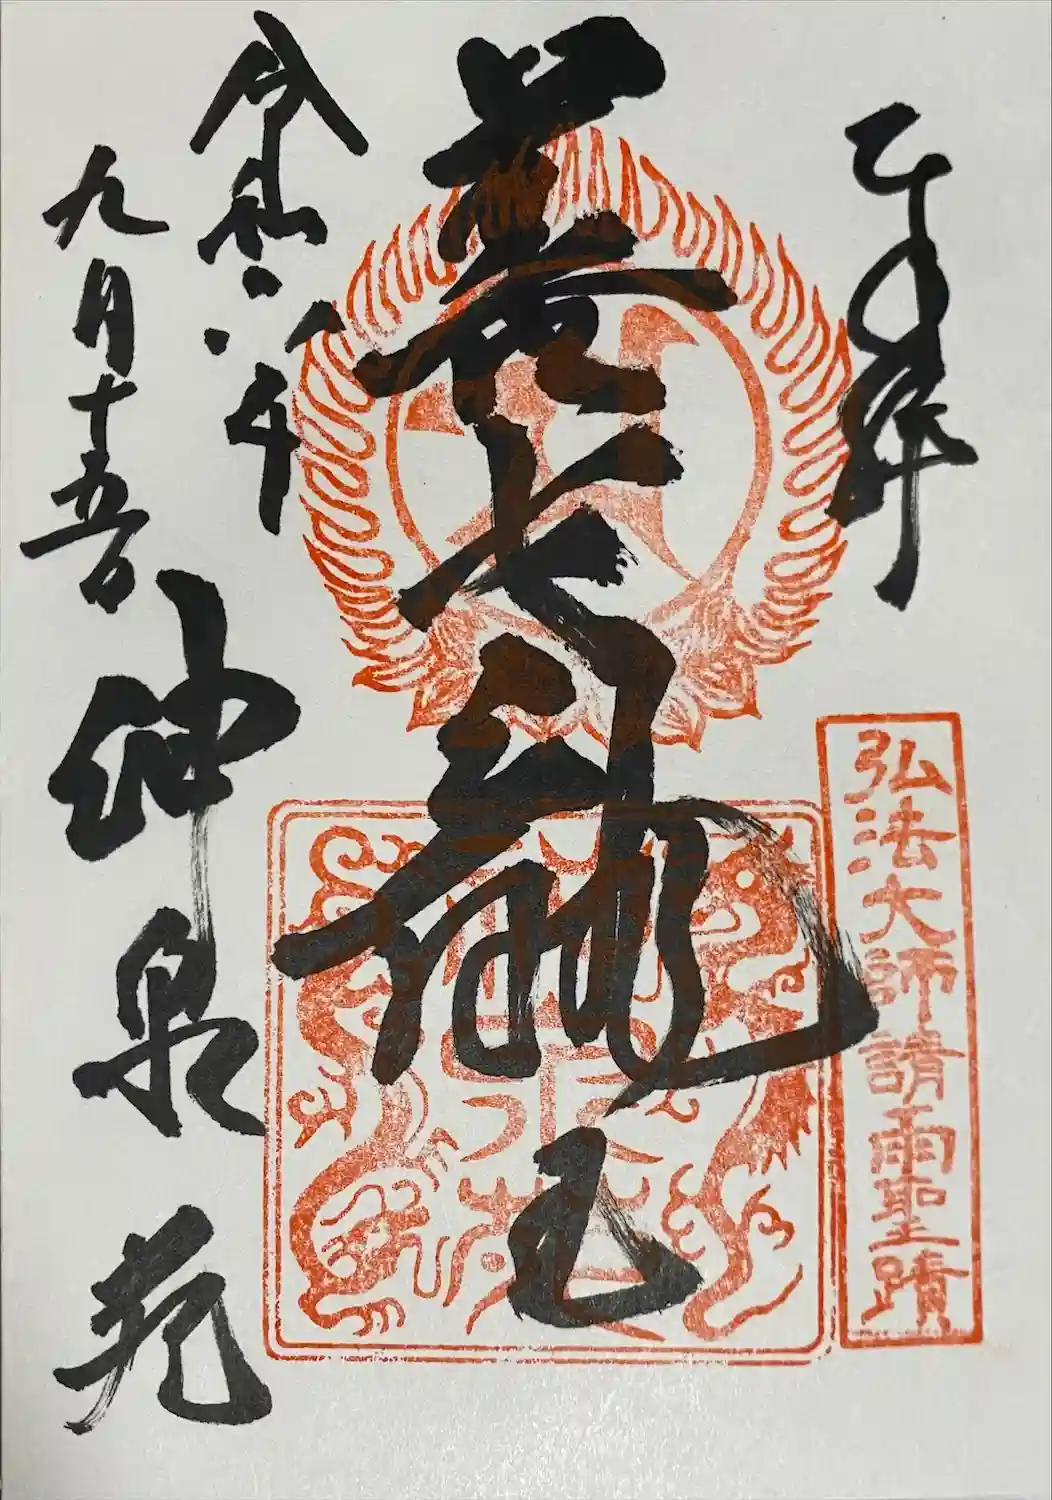 奉拝
弘法大師請雨聖蹟
善女龍王
令和六年
九月十五日
神泉苑